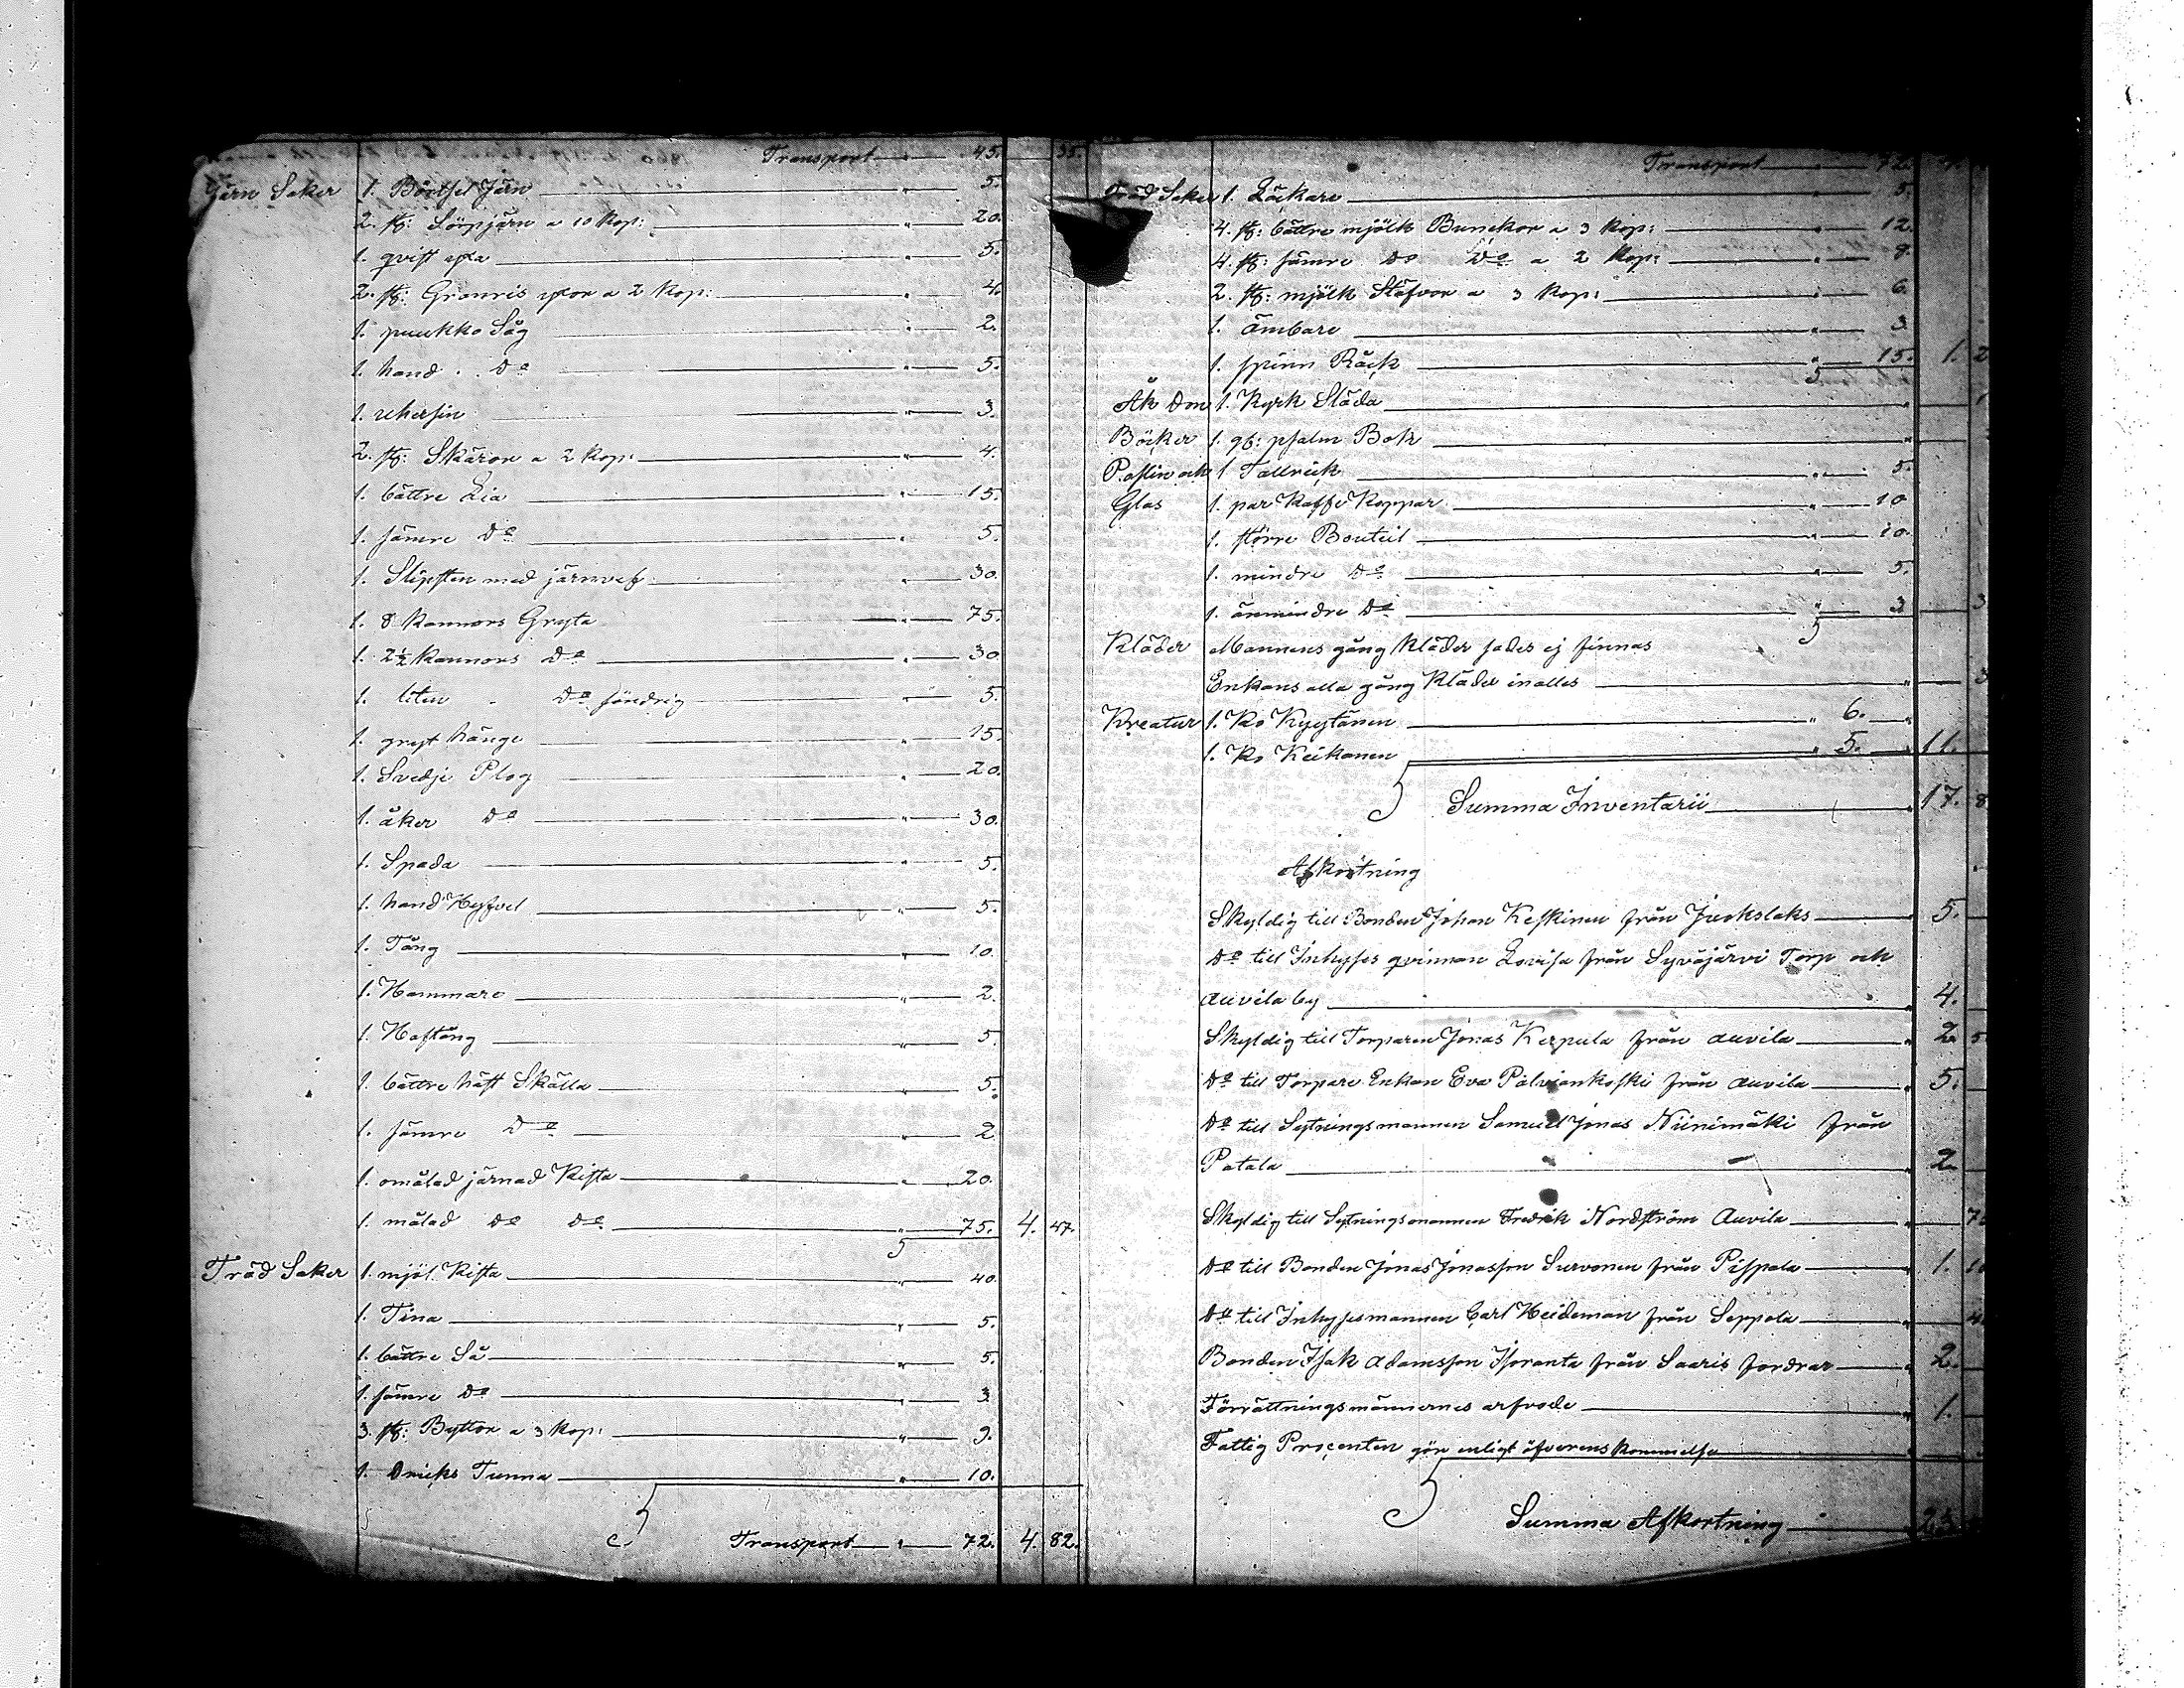 Transport " 45. 35.
Järn Saker 1. Böetsel Järn " 5.
2. st: Sörpjärn a 10 Kop: " 20.
1. qvist yxa " 5.
2. st: Granris yxor a 2 Kop: " 4.
1. puukko Såg " 2.
1. hand Do " 5.
1. 3.
2. st: Skäror a 2 Kop: " 4.
1. bättre Lia " 15.
1. sämre Do " 5.
1. Slipsten med järnvef " 30.
1. 8 Kannors Gryta " 75.
1. 2½ Kannors Do " 30
1. liten Do söndrig " 5.
1. gryt hänge " 15.
1. Svedje Plog " 20.
1. åker Do " 30.
1. Spada " 5.
1. hand Hyfvel " 5.
1. Tång " 10.
1. Hammare " 2.
1. Hoftång " 5.
1. bättre häst Skälla " 5.
1. sämre Do " 2.
1. omålad järnad Kista " 20.
1. målad Do Do " 75. 4. 47.
Träd Saker 1. mjöl Kista " 40.
1. Tina " 5.
1. bättre Så " 5.
1. sämre Do " 3.
3. st: Byttor a 3 Kop: " 9.
1. Dricks Tunna " 10.
Transport " 72. 4. 82.
Transport " 72.
Träd Saker 1. Löckare " 5.
4. st: bättre mjölk Bunckor a 3 Kop: " 12.
4. st: sämre Do Do a 2 Kop: " 8.
2. st: mjölk Stäfvor a 3 Kop: " 6.
1. ämbare " 3.
1. spinn Råck " 15. 1. 2
Åk Don 1. Kyrk Släda "
Böcker 1. gl: psalm Bok "
Poslin och 1 Tallrick " 5.
Glas 1. par Kaffe Koppar " 10
1. större Bouteil " 10.
1. mindre Do " 5.
1. änmindre Do " 3 3
Kläder Mannens gång Kläder sades ej finnas
Enkans alla gång Kläder inalles " 3
Kreatur 1. Ko Kyytänen " 6.
1. Ko Keikanen " 5. 11.
Summa Inventarii " 17. 8
Afkortning
Skyldig till Bonden Johan Keskinen från Juokslaks 5.
Do till Inhyses qvinnan Lovisa från Syväjärvi Torp och
Auvila by " 4.
Skyldig till Torparen Jonas Kerpula från Auvila " 2. 5
Do till Torpare Enkan Eva Pälviänkoski från Auvila " 5.
Do till Sytningsmannen Samuel Jonas Niinimäki från
Patala " 2.
Skyldig till Sytningsmannen Fredrik Nordström Auvila " 7
Do till Bonden Jonas Jonasson Survonen från Pispala " 1.
Do till Inhysesmannen Carl Heideman från Seppola " 4
Bonden Isak Adamsson Isoranta från Saaris fordrar " 2.
Förrättningsmännernes arfvode " 1.
Fattig Procenten gör enligt öfverenskommelse
Summa Afkortning " 23.